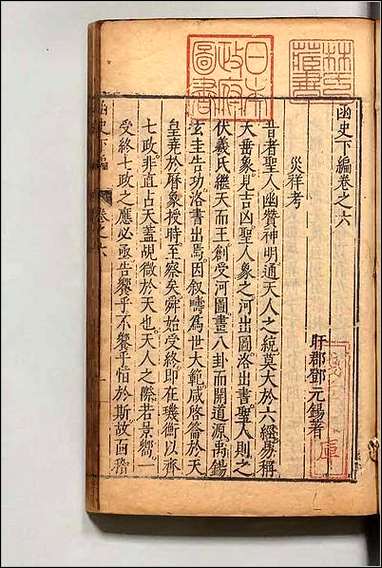 函史下編卷之六
盱郡鄧元錫著
災祥考
昔者聖人幽贊神明通天人之統莫大於六經易稱
天垂象見吉凶聖人象之河出圖洛出書聖人則之
伏羲氏繼天而王創受河圖畫八卦而開道源禹錫
玄圭告功洛書出焉因叙疇為世大範咸啓籥於天
皇堯於曆象授時至察矣舜始受終即在璣衡以齊
七政非直占天蓋覘微於天也天人之際若景嚮一
受終七政之應必亟告饗乎不饗乎怕於斯故
函史下編
卷之六
日本
政府
圖書
林氏
藏書
庫